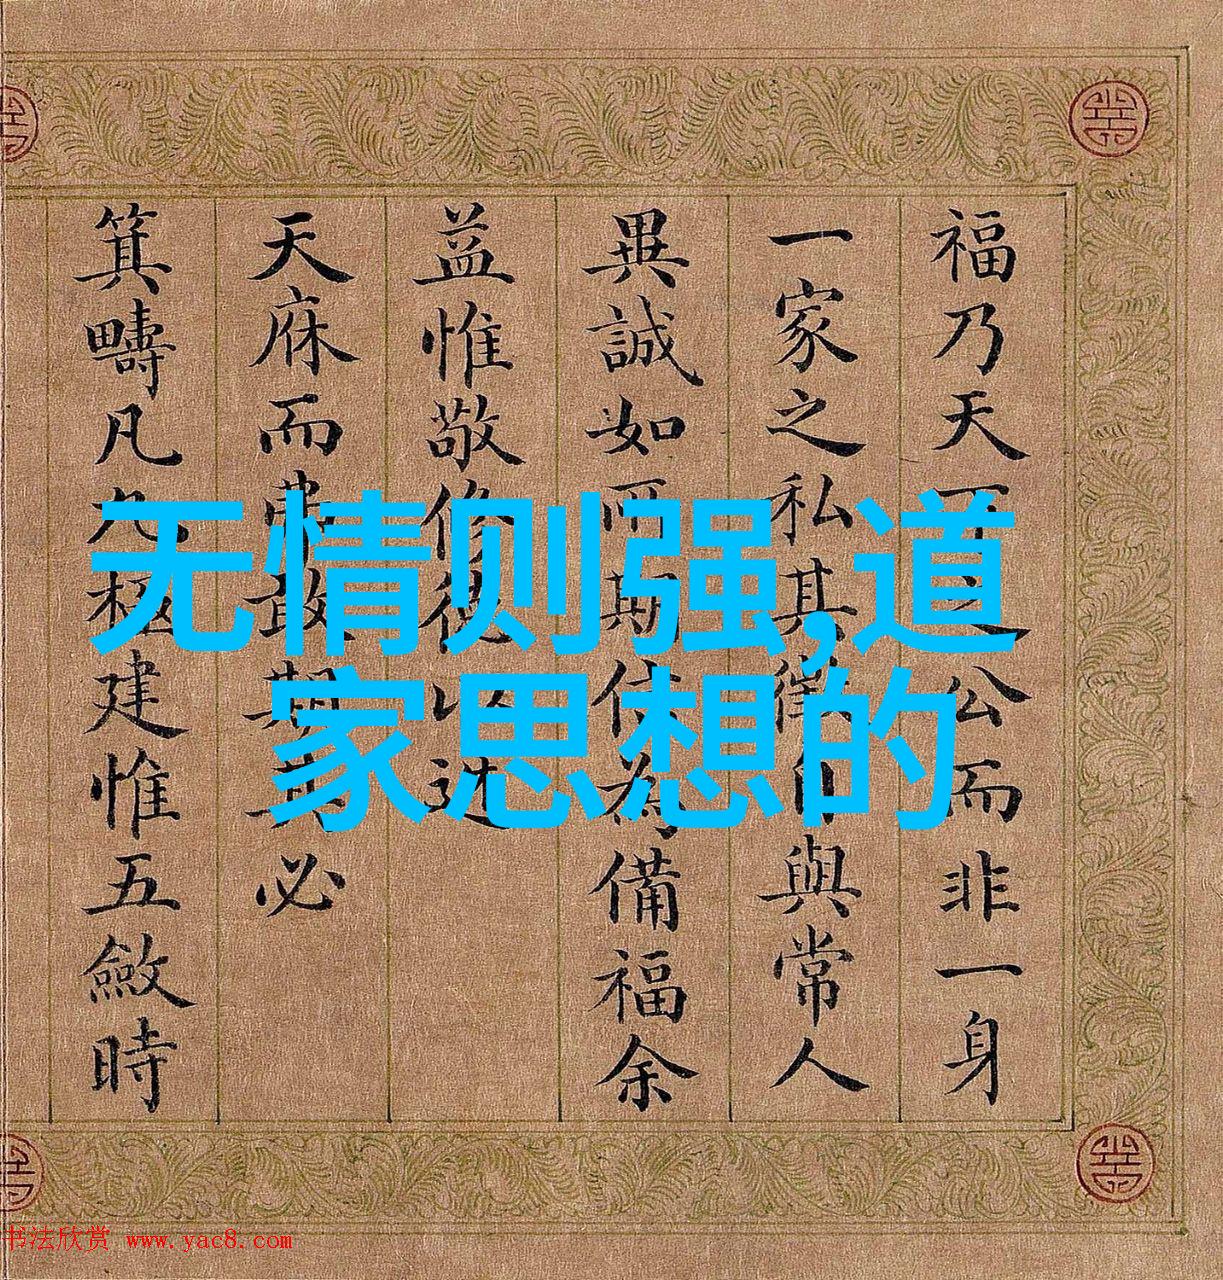 无情则强,道
家思想的
福乃天下之公而非一身
一家之私其與常人
異誠如而期信為備福余
益惟敬修德以
天庥而敢期其必
箕疇凡九極建惟五斂時
书法欣赏 www.yac8.com